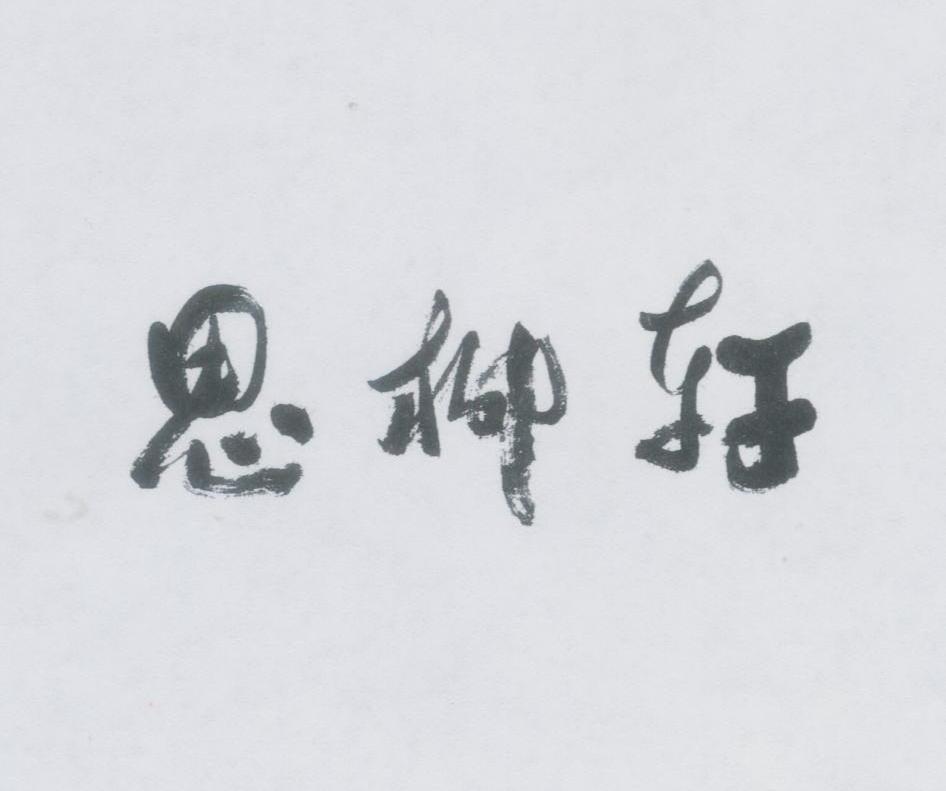 思柳轩